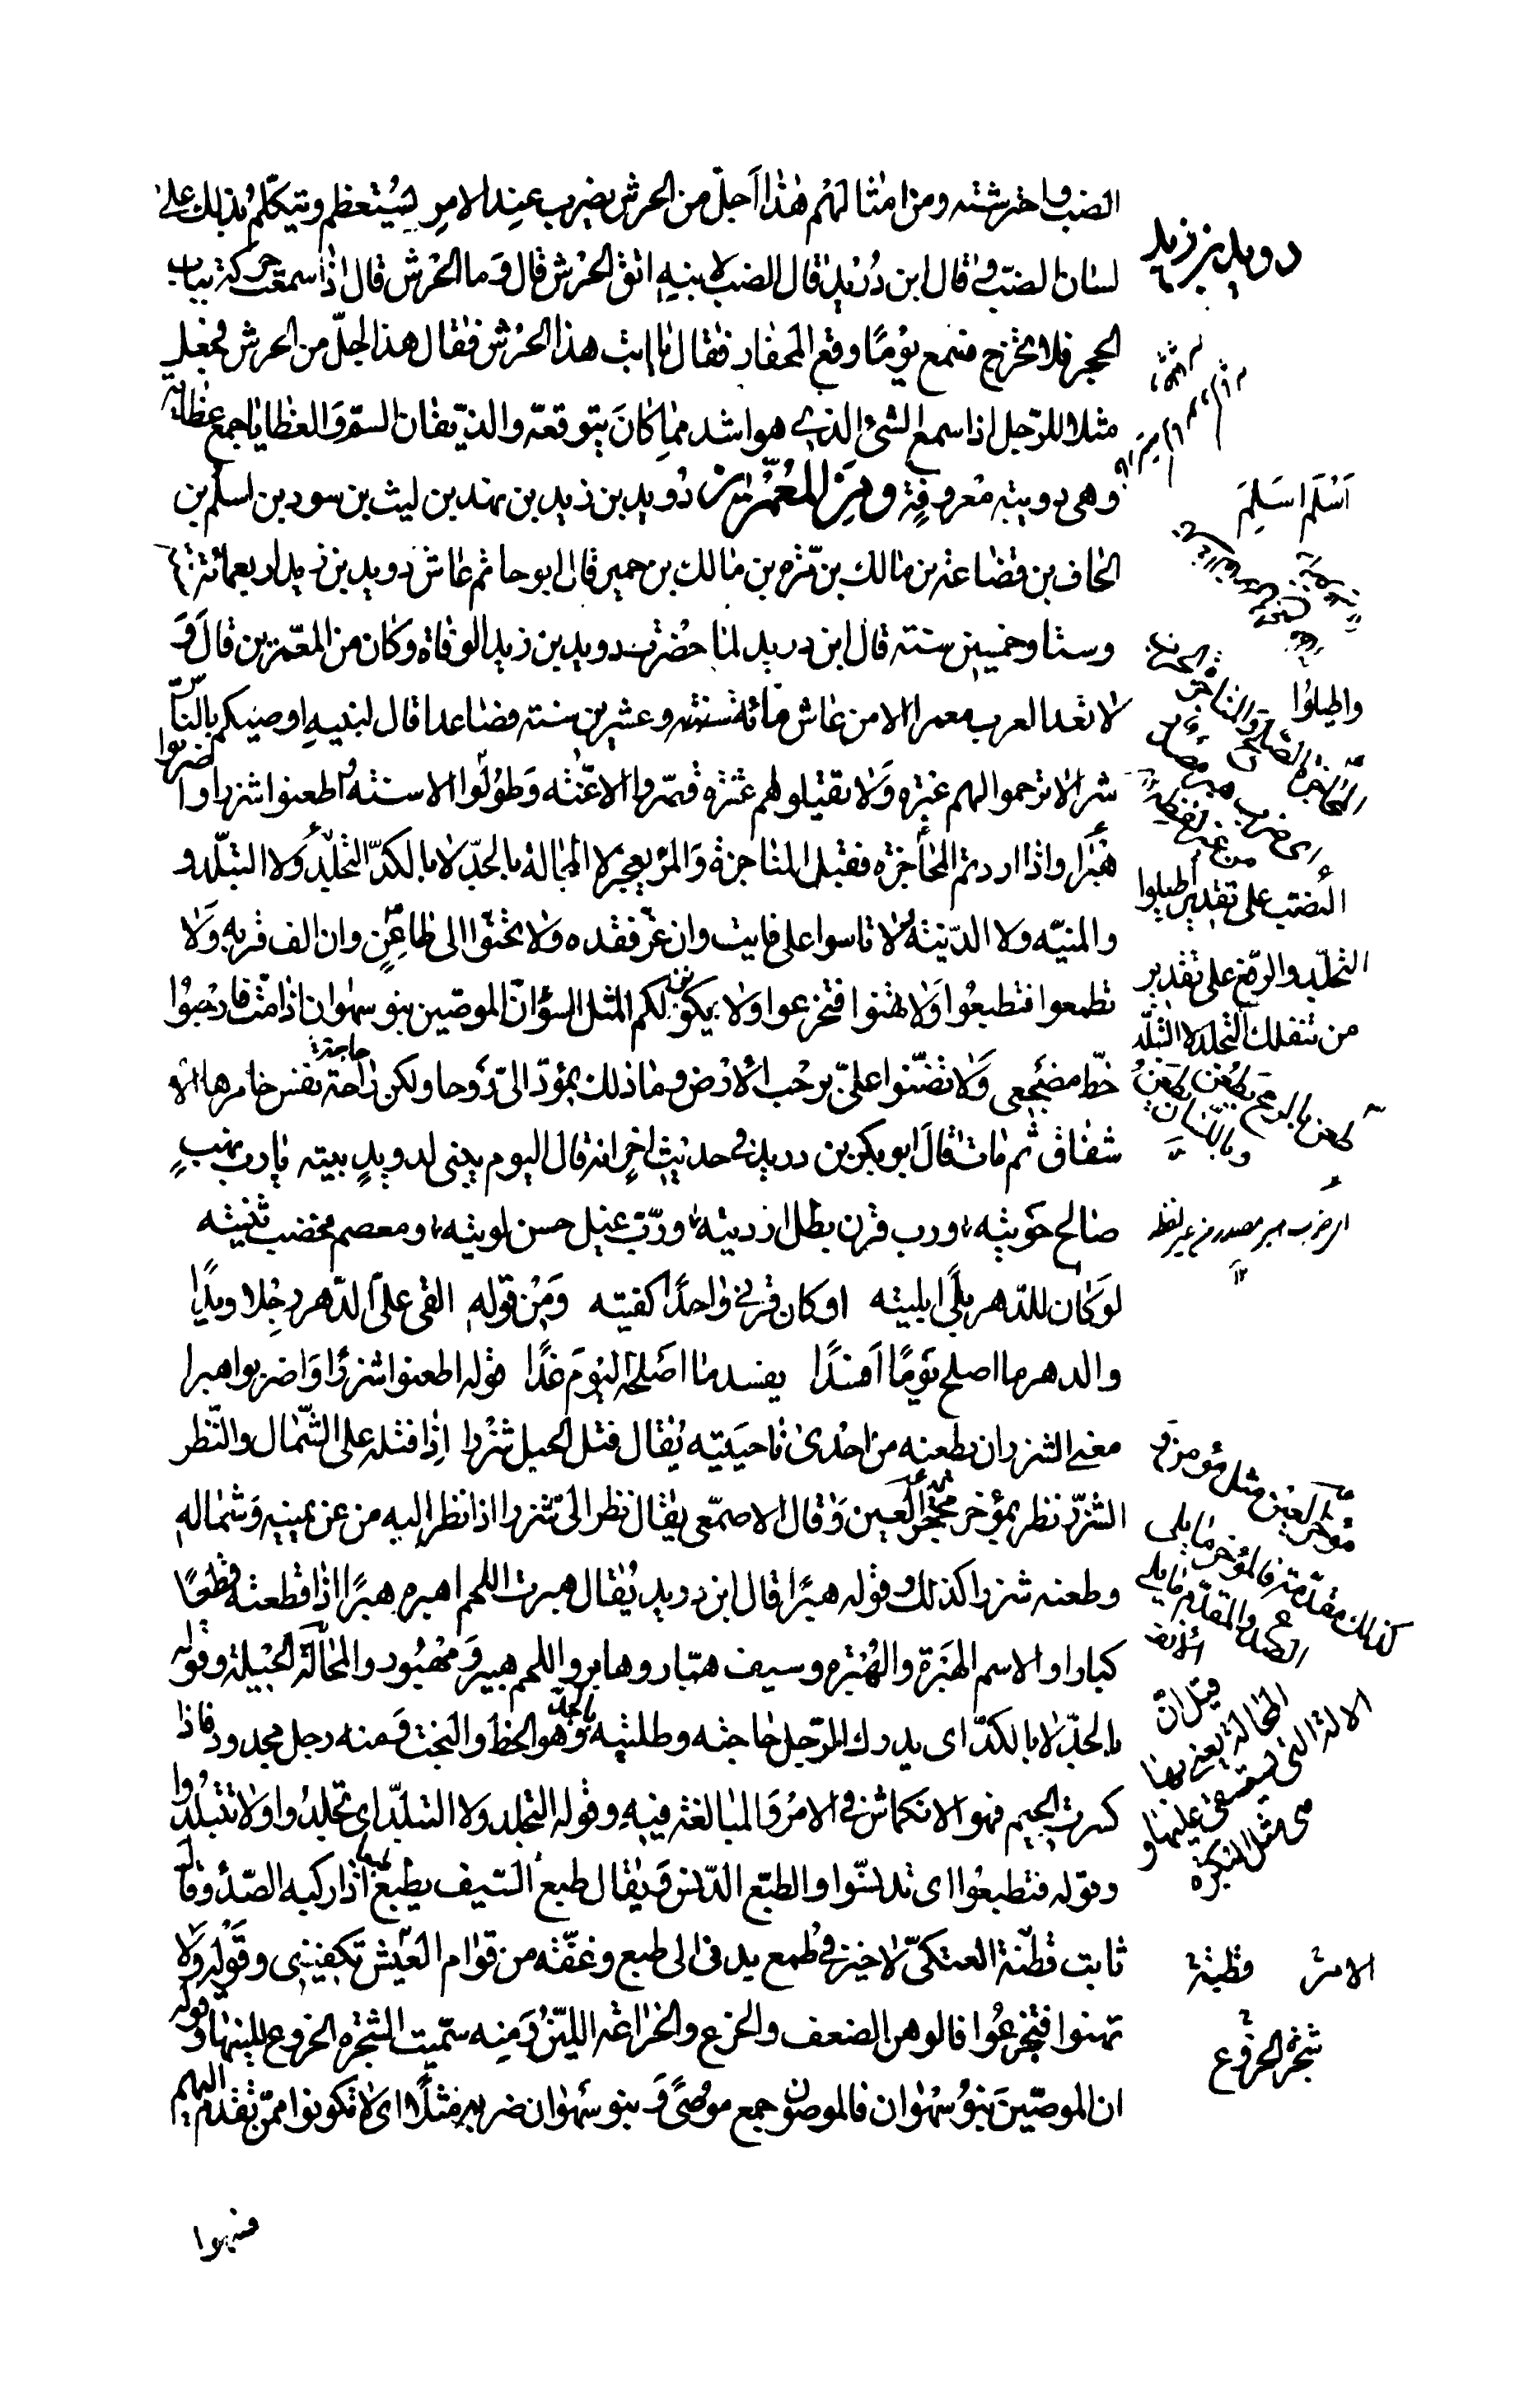 الضب واحترشته ومن امثالهم هٰذا اَجلّ من الحرش يضرب عند الامر يُستعظم ويتكلّم بذلك على
لسان الضبّ قال ابن دُريد قال الضب لابنهِ اتق الحرْش قال وَما الحرْش قال اذا سمعت حركة بباب
الحجر فلا تخرج فسمع يومًا وقع المحفار فقال يا ابت هذا الحرْش فقال هذا اجلّ من الحرش فجعل
مثلا للرّجل اذا سمع الشئ الذي هو اشد مما كانَ يتوقعه والذيفان السمّ وَالعظايا جمع عظاية
وهى دويبته مُعروفة ومِنَ المُعَمَّرين دُويد بن زيد بن نهد بن ليث بن سود بن اسلم بن
الحاف بن قضاعة بن مالك بن مّرة بن مالك بن حمير قال ابو حاتم عاش دويد بن زيد اربعمائة
وستا وخمسين سنة قال ابن دريد لما حُضرت دويد بن زيد الوفاة وكان من المعّمرين قال وَ
لا تعد العرب معمرا الا من عاش مائة سنة وعشرين سنة فصاعدا قال لبنيهِ اوصيكم بالناس
شرا لا ترحموا لهم عَبرة وَلا تقيلوا لهم عَثرة قصّروا الاعنّة وَطوّلوا الاسنة واطعنوا شزرا واضربوا
هَبْرا واذا اردتم المحاجزة فقبل المناجزة وَالمرء يعجز لا المحالة بالجدّ لا بالكدّ التجلّد ولا التبلّد و
والمنيّه ولا الدّنيّة ولا تاسوا على فايت وان عزّ فقده ولا تحنّوا الى ظاعنٍ وان الف قربه وَلا
تطمعوا فتطبعُوا وَلا تهنوا فتخرعوا ولا يكونن لكم المثل السوٴ انّ الموصّين بنو سهوان اذا متّ فارحبُوا
خطّ مضجعى وَلا تضنّوا علىّ برحب الارض وما ذلك بمؤدّ الىّ رَوحا ولكن راحة حاجة نفس خامرها الا
شفاق ثم مات قالَ ابو بكر بن دريد فى حديث اٰخر انه قال اليوم يبنى لدويدٍ بيته يا رب نهبٍ
صالح حَويته ورب قرن بطل ارديته وربّ غيل حسن لويته ومعصم مخضب ثنيته
لوَكان للدّهر بلًى ابليته او كان قرنى واحدًا كفيته وَمِن قوله القى علىّ الدّهر رجلا ويدًا
والدهر ما اصلح يَومًا اَفسدا يفسد ما اصَلحه اليَومَ غدًا قوله اطعنوا شزرًا وَاضربوا هبرا
معنى الشزر ان يطعنه من احْدىٰ ناحيتيه يُقال فتل الحبل شزْرا اِذا فتله على الشّمال والنّظر
الشزر نظر بمؤخر العين وَقال الاصمّعى يقال نظر الىّ شزرا اذا نظر اليه من عن يمينه وَشماله
وطعنه شزرا كذلك وقوله هبرًا قال ابن دريد يُقال هبرت اللحم اهبره هبرًا اذا قطعته قطعًا
كبارا والاسم الهَبرة والهُبْرة وسيف هبّار وهابر واللحم هبير وَ مَهْبُور والمحالَة الحْيلة وقوله
بالجدّ لا بالكدّ اى يدرك الرّجل حاجته وطلبته بالجدّ وَهو الحظ وَالبَخت وَمنه رجل مجدود فاذا
كسرت الجيم فهو الانكماش فى الامْر وَالمبالغة فيهِ وقوله التجلد ولا التبلّد اى تجلدُوا ولا تتبلدُوا
وقوله فتطبعُوا اى تدنسّوا والطبَع الدّنس وَيقال طبع السّيف يطبع طبعا اذا ركبه الصّدأ وقال
ثابت قطنة العتكىّ لا خير فى طمع يدنى الى طبع وغفّة من قوام العَيش تكفينى وقَوْله وَلا
تهنوا فتخرعُوا فالوهن الضعف والخرع والخراعة الليّن وَمنه سمّيت الشجرة الخروع للينها وقوله
ان الموصّينَ بَنوُ سُهْوان فالموصون جمع موصًى وَ بنو سَهوان ضربه مثلًا اى لا تكونوا ممّن تقدم اليهم
فسهوا
دويد بن زيد
اَسْلَم اسَلِمَ
واطيلوا
النصب على تقدير اطيلوا
التجلّد والرفع على تقدير
من شغلك التجلد لا التبلّد
اى ضرب هبر مصدر من غير لفظه
مؤخر العين مثل مؤمن
كذلك مقدّمة فالمؤخر ما يلى
الصدغ والمقدّم ما يلى
الانف
قيل انّ
المحالة يعنى بها
الالة التى يستقى عليها و
هى مثل البكرة
قطنة
شجرة الخروع